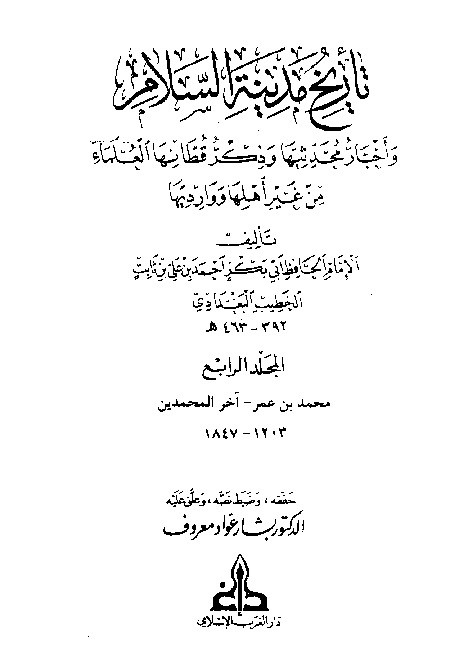 تاريخ مدينة السلام
وأخبار محدثيها وذكر قطانها العلماء
من غير أهلها ووارديها
تأليف
الإمام الحافظ أبي بكر أحمد بن علي بن ثابت
الخطيب البغدادي
٣٩٢ - ٤٦٣ هـ
المجلد الرابع
محمد بن عمر - آخر المحمدين
١٢٠٣ - ١٨٤٧
حققه، وضبط نصه، وعلق عليه
الدكتور بشار عواد معروف
دار الغرب الإسلامي